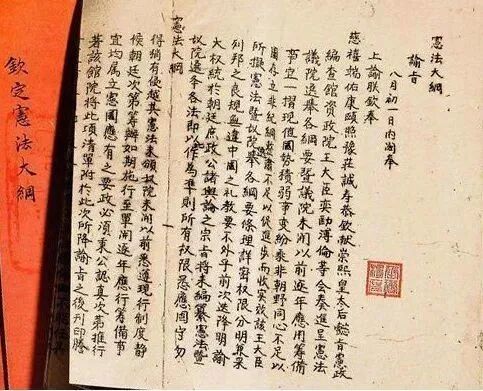 憲法大綱
諭旨
八月初一日內閣奉
上諭朕欽奉
慈禧端佑康頤昭豫莊誠壽恭欽獻崇熙皇太后懿旨憲政
編查館資政院王大臣奕劻溥倫等會奏進呈憲法
議院選舉各綱要暨議院未開以前逐年應用籌備
事宜一摺現值國勢積弱事變紛乘非朝野同心不足以
圖存立非紀綱整肅不足以促進步而收實效該王大臣
所擬憲法暨以院選舉各綱要條理詳密權限分明兼采
列邦之良規無違中國之礼教要不外乎前次迭降明諭
大权統於朝廷庶政公諸輿論之宗旨將未編纂憲法暨
以院選舉各法即以作為準則所有權限悉應固守勿
憲法大綱
得稍有侵越其憲法未頒以院未開以前悉遵現行制度靜
侯朝廷次第籌辦如期施行至單開逐年應行籌備事
宜均属立憲國應有之要政必須秉公認真次第推行
著該館院將此項清單附於此次所降諭旨之後刊印謄
欽定憲法大綱